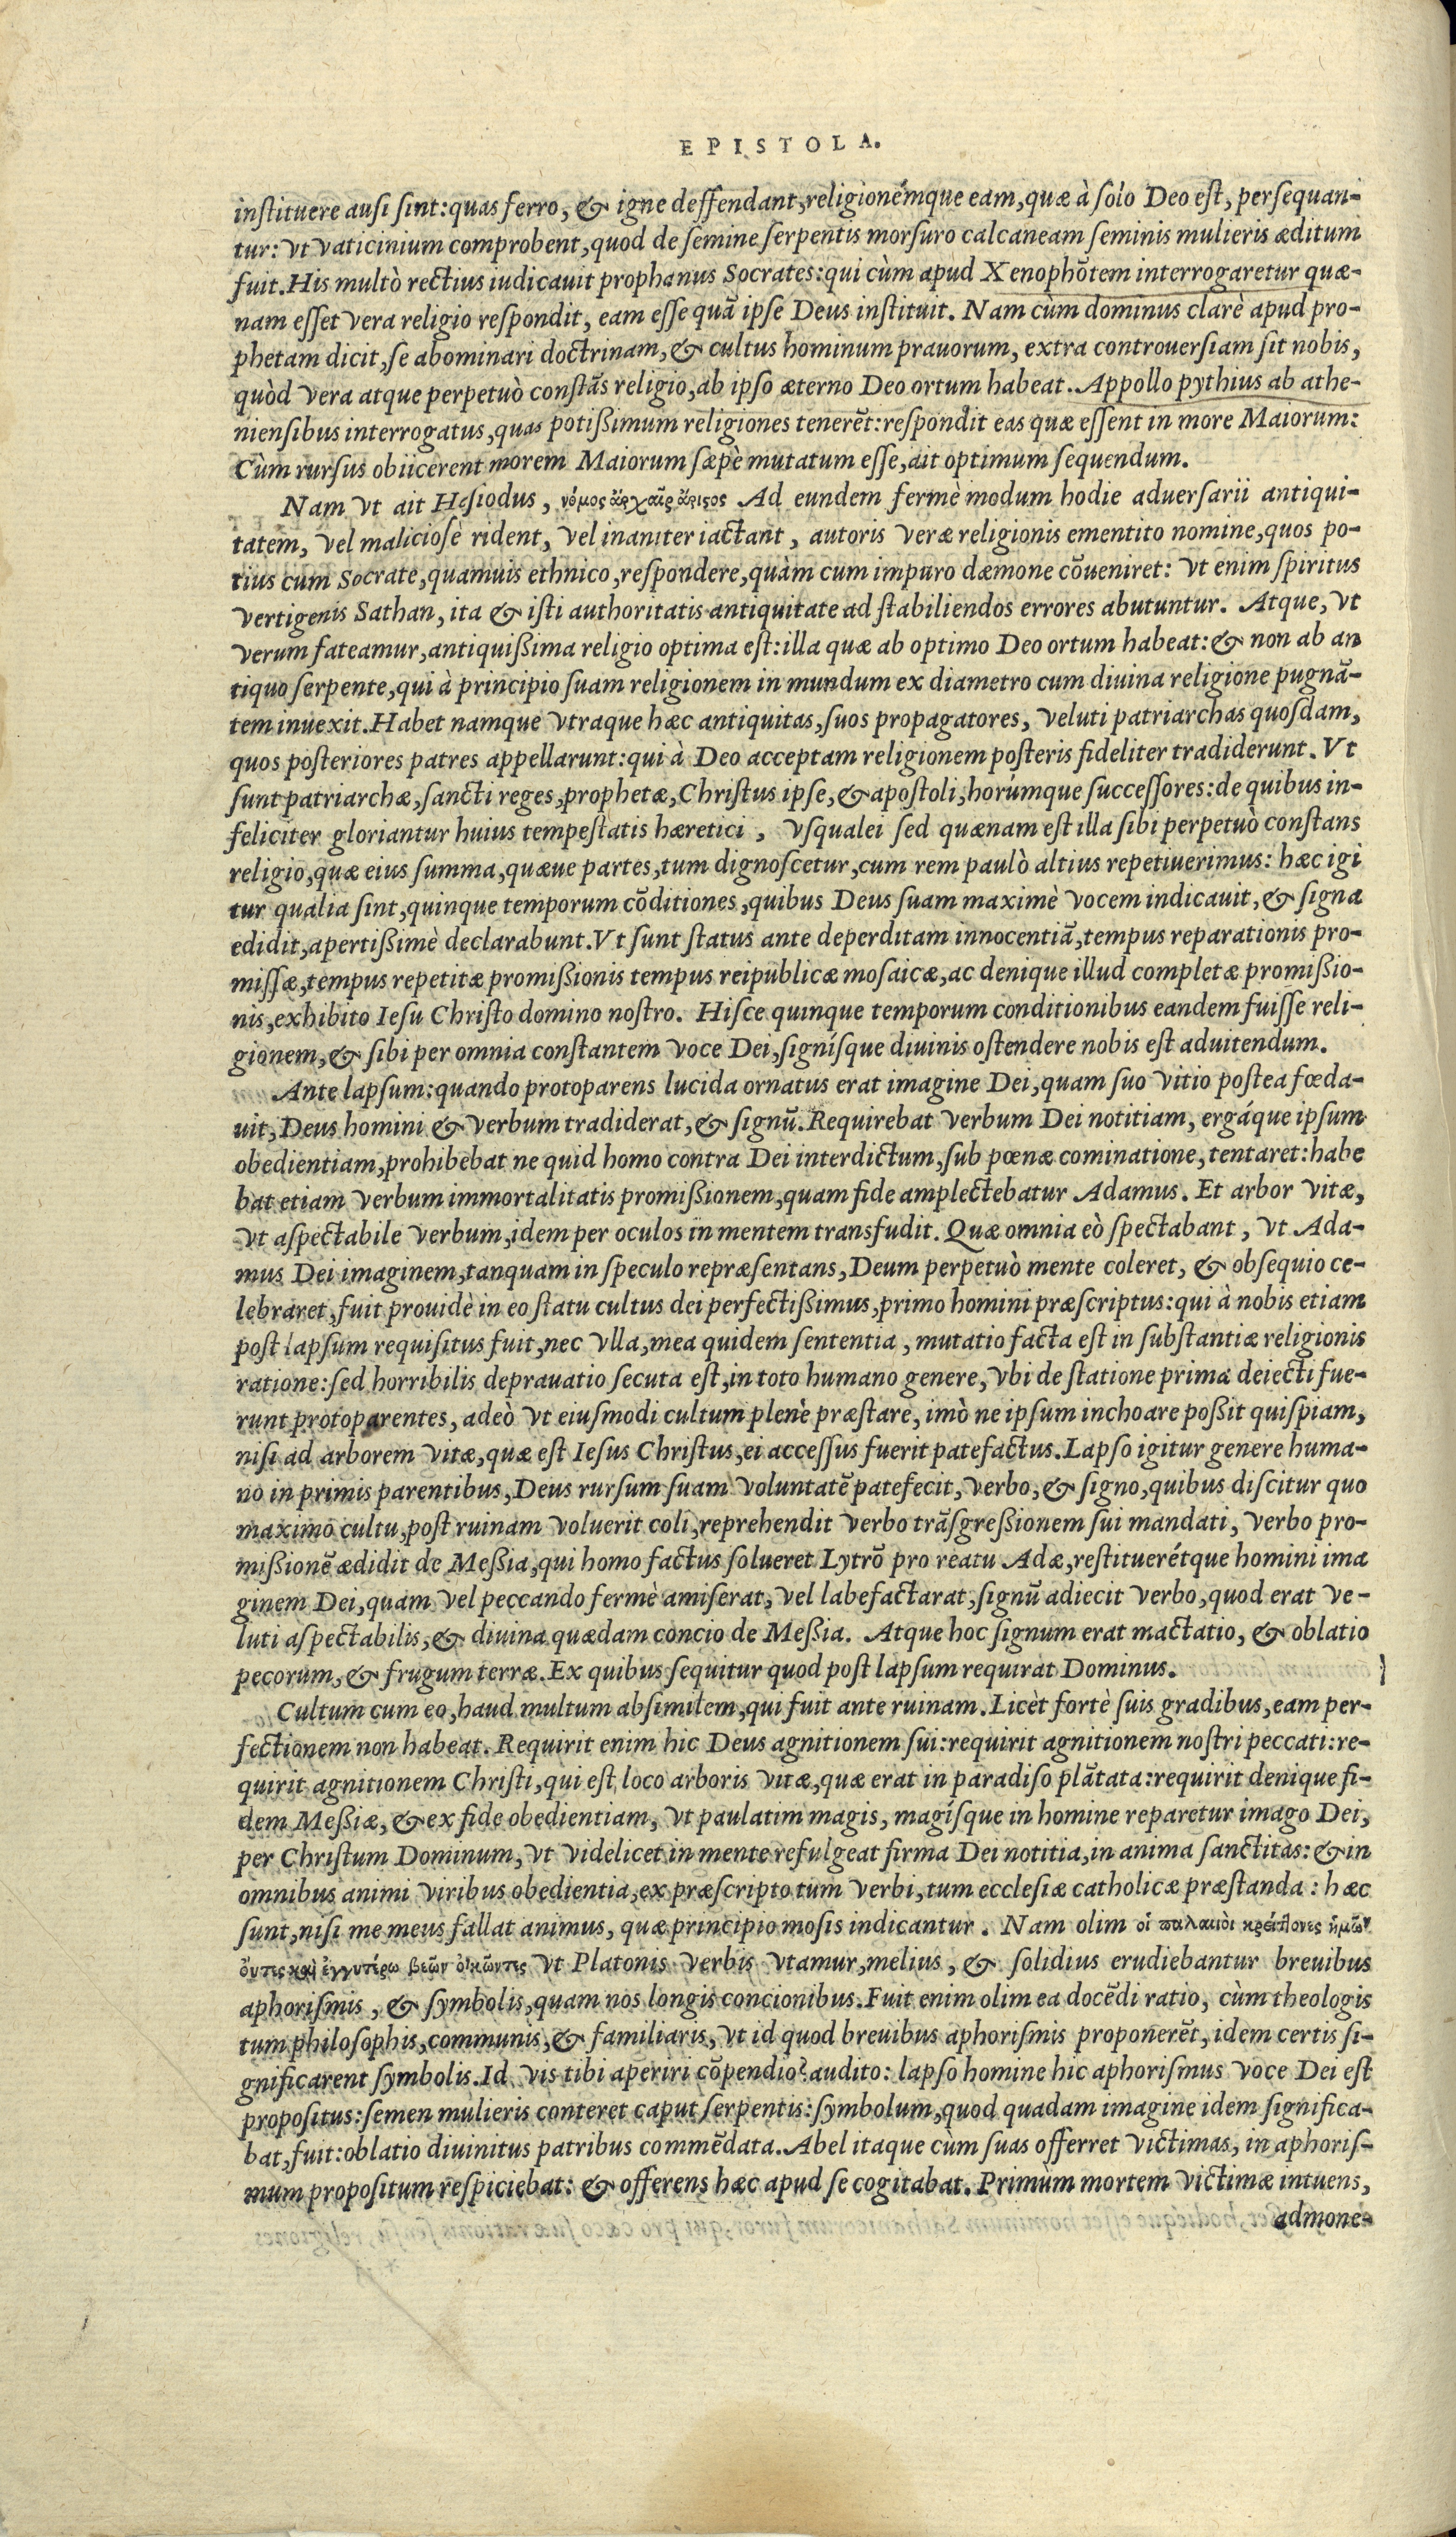 EPISTOLA.
instituere ausi sint: quas ferro, & igne deffendant, religionémque eam, quæ à solo Deo est, persequan-
tur: vt vaticinium comprobent, quod de semine serpentis morsuro calcaneam seminis mulieris æditum
fuit. His multò rectius iudicauit prophanus Socrates: qui cùm apud Xenophõtem interrogaretur quæ-
nam esset vera religio respondit, eam esse quã ipse Deus instituit. Nam cùm dominus clarè apud pro-
phetam dicit, se abominari doctrinam, & cultus hominum prauorum, extra controuersiam sit nobis,
quòd vera atque perpetuò constãs religio, ab ipso æterno Deo ortum habeat. Appollo pythius ab athe-
niensibus interrogatus, quas potißimum religiones tenerẽt: respondit eas quæ essent in more Maiorum:
Cùm rursus obiicerent morem Maiorum sæpè mutatum esse, ait optimum sequendum.
Nam vt ait Hesiodus, νόμος Ad eundem fermè modum hodie aduersarii antiqui-
tatem, vel maliciosè rident, vel inaniter iactant, autoris veræ religionis ementito nomine, quos po-
tius cum Socrate, quamuis ethnico, respondere, quàm cum impuro dæmone cõueniret: vt enim spiritus
vertigenis Sathan, ita & isti authoritatis antiquitate ad stabiliendos errores abutuntur. Atque, vt
verum fateamur, antiquißima religio optima est: illa quæ ab optimo Deo ortum habeat: & non ab an
tiquo serpente, qui à principio suam religionem in mundum ex diametro cum diuina religione pugnã-
tem inuexit. Habet namque vtraque hæc antiquitas, suos propagatores, veluti patriarchas quosdam,
quos posteriores patres appellarunt: qui à Deo acceptam religionem posteris fideliter tradiderunt. Vt
sunt patriarchæ, sancti reges, prophetæ, Christus ipse, & apostoli, horúmque successores: de quibus in-
feliciter gloriantur huius tempestatis hæretici, vsqualei sed quænam est illa sibi perpetuò constans
religio, quæ eius summa, quæue partes, tum dignoscetur, cum rem paulò altius repetiuerimus: hæc igi
tur qualia sint, quinque temporum cõditiones, quibus Deus suam maximè vocem indicauit, & signa
edidit, apertißimè declarabunt. Vt sunt status ante deperditam innocentiã, tempus reparationis pro-
missæ, tempus repetitæ promißionis tempus reipublicæ mosaicæ, ac denique illud completæ promißio-
nis, exhibito Iesu Christo domino nostro. Hisce quinque temporum conditionibus eandem fuisse reli-
gionem, & sibi per omnia constantem voce Dei, signísque diuinis ostendere nobis est aduitendum.
Ante lapsum: quando protoparens lucida ornatus erat imagine Dei, quam suo vitio postea fœda-
uit, Deus homini & verbum tradiderat, & signũ. Requirebat verbum Dei notitiam, ergáque ipsum
obedientiam, prohibebat ne quid homo contra Dei interdictum, sub pœnæ cominatione, tentaret: habe
bat etiam verbum immortalitatis promißionem, quam fide amplectebatur Adamus. Et arbor vitæ,
vt aspectabile verbum, idem per oculos in mentem transfudit. Quæ omnia eò spectabant, vt Ada-
mus Dei imaginem, tanquam in speculo repræsentans, Deum perpetuò mente coleret, & obsequio ce-
lebraret, fuit prouidè in eo statu cultus dei perfectißimus, primo homini præscriptus: qui à nobis etiam
post lapsum requisitus fuit, nec vlla, mea quidem sententia, mutatio facta est in substantiæ religionis
ratione: sed horribilis deprauatio secuta est, in toto humano genere, vbi de statione prima deiecti fue-
runt protoparentes, adeò vt eiusmodi cultum plenè præstare, imò ne ipsum inchoare poßit quispiam,
nisi ad arborem vitæ, quæ est Iesus Christus, ei accessus fuerit patefactus. Lapso igitur genere huma-
no in primis parentibus, Deus rursum suam voluntatẽ patefecit, verbo, & signo, quibus discitur quo
maximo cultu, post ruinam voluerit coli, reprehendit verbo trãsgreßionem sui mandati, verbo pro-
mißionẽ ædidit de Meßia, qui homo factus solueret Lytrõ pro reatu Adæ, restituerétque homini ima
ginem Dei, quam vel peccando fermè amiserat, vel labefactarat, signũ adiecit verbo, quod erat ve-
luti aspectabilis, & diuina quædam concio de Meßia. Atque hoc signum erat mactatio, & oblatio
pecorum, & frugum terræ. Ex quibus sequitur quod post lapsum requirat Dominus.
Cultum cum eo, haud multum absimilem, qui fuit ante ruinam. Licèt fortè suis gradibus, eam per-
fectionem non habeat. Requirit enim hic Deus agnitionem sui: requirit agnitionem nostri peccati: re-
quirit agnitionem Christi, qui est loco arboris vitæ, quæ erat in paradiso plãtata: requirit denique fi-
dem Meßiæ, & ex fide obedientiam, vt paulatim magis, magísque in homine reparetur imago Dei,
per Christum Dominum, vt videlicet in mente refulgeat firma Dei notitia, in anima sanctitas: & in
omnibus animi viribus obedientia, ex præscripto tum verbi, tum ecclesiæ catholicæ præstanda: hæc
sunt, nisi me meus fallat animus, quæ principio mosis indicantur. Nam olim οἱ παλαιοὶ κρείττονες ἡμῶν
vt Platonis verbis vtamur, melius, & solidius erudiebantur breuibus
aphorismis, & symbolis, quam nos longis concionibus. Fuit enim olim ea docẽdi ratio, cùm theologis
tum philosophis, communis, & familiaris, vt id quod breuibus aphorismis proponerẽt, idem certis si-
gnificarent symbolis. Id vis tibi aperiri cõpendio? audito: lapso homine hic aphorismus voce Dei est
propositus: semen mulieris conteret caput serpentis: symbolum, quod quadam imagine idem significa-
bat, fuit: oblatio diuinitus patribus commẽdata. Abel itaque cùm suas offerret victimas, in aphoris-
mum propositum respiciebat: & offerens hæc apud se cogitabat. Primùm mortem victimæ intuens,
admone-